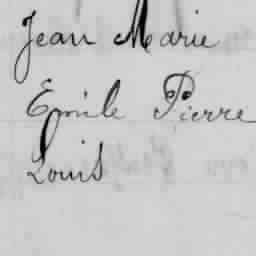 Jean Marie
Emile Pierre
Louis